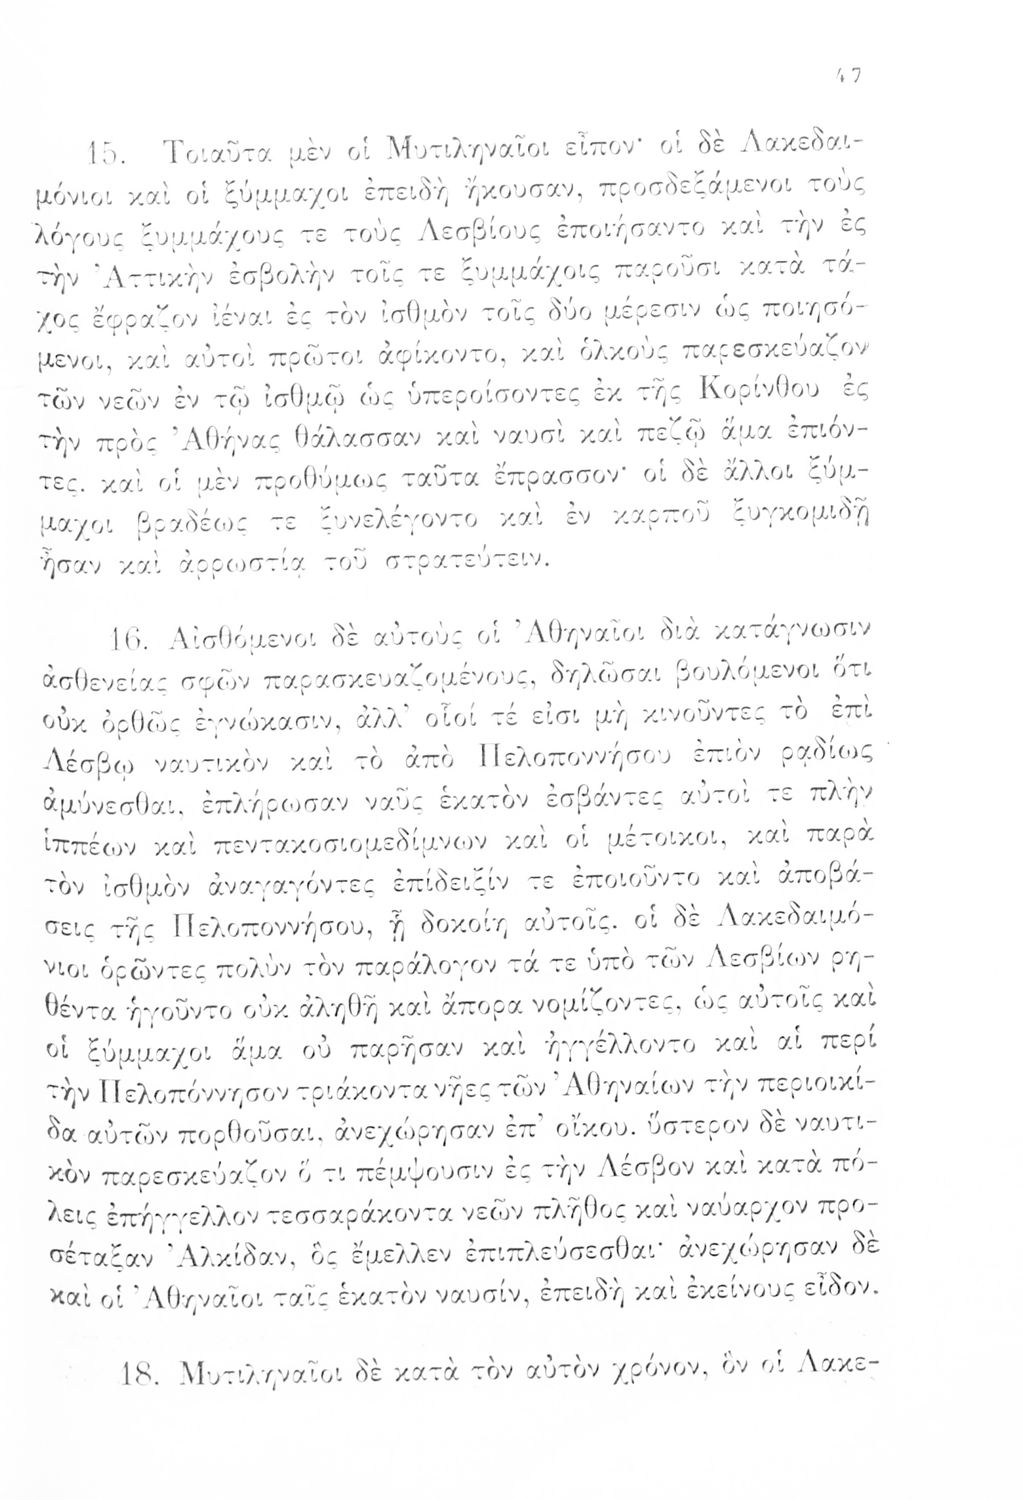 47
15. Τοιαῦτα μὲν οἱ Μυτιληναῖοι εἶπον· οἱ δὲ Λακεδαι-
μόνιοι καὶ οἱ ξύμμαχοι ἐπειδὴ ἤκουσαν, προσδεξάμενοι τοὺς
λόγους ξυμμάχους τε τοὺς Λεσβίους ἐποιήσαντο καὶ τὴν ἐς
τὴν Ἀττικὴν ἐσβολὴν τοῖς τε ξυμμάχοις παροῦσι κατὰ τά-
χος ἔφραζον ἰέναι ἐς τὸν ἰσθμὸν τοῖς δύο μέρεσιν ὡς ποιησό-
μενοι, καὶ αὐτοὶ πρῶτοι ἀφίκοντο, καὶ ὁλκοὺς παρεσκεύαζον
τῶν νεῶν ἐν τῷ ἰσθμῷ ὡς ὑπεροίσοντες ἐκ τῆς Κορίνθου ἐς
τὴν πρὸς Ἀθήνας θάλασσαν καὶ ναυσὶ καὶ πεζῷ ἅμα ἐπιόν-
τες. καὶ οἱ μὲν προθύμως ταῦτα ἔπρασσον· οἱ δὲ ἄλλοι ξύμ-
μαχοι βραδέως τε ξυνελέγοντο καὶ ἐν καρποῦ ξυγκομιδῇ
ἦσαν καὶ ἀρρωστίᾳ τοῦ στρατεύτειν.
16. Αἰσθόμενοι δὲ αὐτοὺς οἱ Ἀθηναῖοι διὰ κατάγνωσιν
ἀσθενείας σφῶν παρασκευαζομένους, δηλῶσαι βουλόμενοι ὅτι
οὐκ ὀρθῶς ἐγνώκασιν, ἀλλ’ οἷοί τέ εἰσι μὴ κινοῦντες τὸ ἐπὶ
Λέσβῳ ναυτικὸν καὶ τὸ ἀπὸ Πελοποννήσου ἐπιὸν ῥᾳδίως
ἀμύνεσθαι, ἐπλήρωσαν ναῦς ἑκατὸν ἐσβάντες αὐτοί τε πλὴν
ἱππέων καὶ πεντακοσιομεδίμνων καὶ οἱ μέτοικοι, καὶ παρὰ
τὸν ἰσθμὸν ἀναγαγόντες ἐπίδειξίν τε ἐποιοῦντο καὶ ἀποβά-
σεις τῆς Πελοποννήσου, ᾗ δοκοίη αὐτοῖς. οἱ δὲ Λακεδαιμό-
νιοι ὁρῶντες πολὺν τὸν παράλογον τά τε ὑπὸ τῶν Λεσβίων ῥη-
θέντα ἡγοῦντο οὐκ ἀληθῆ καὶ ἄπορα νομίζοντες, ὡς αὐτοῖς καὶ
οἱ ξύμμαχοι ἅμα οὐ παρῆσαν καὶ ἠγγέλλοντο καὶ αἱ περὶ
τὴν Πελοπόννησον τριάκοντα νῆες τῶν Ἀθηναίων τὴν περιοικί-
δα αὐτῶν πορθοῦσαι, ἀνεχώρησαν ἐπ’ οἴκου. ὕστερον δὲ ναυτι-
κὸν παρεσκεύαζον ὅ τι πέμψουσιν ἐς τὴν Λέσβον καὶ κατὰ πό-
λεις ἐπήγγελλον τεσσαράκοντα νεῶν πλῆθος καὶ ναύαρχον προ-
σέταξαν Ἀλκίδαν, ὃς ἔμελλεν ἐπιπλεύσεσθαι· ἀνεχώρησαν δὲ
καὶ οἱ Ἀθηναῖοι ταῖς ἑκατὸν ναυσίν, ἐπειδὴ καὶ ἐκείνους εἶδον.
18. Μυτιληναῖοι δὲ κατὰ τὸν αὐτὸν χρόνον, ὃν οἱ Λακε-